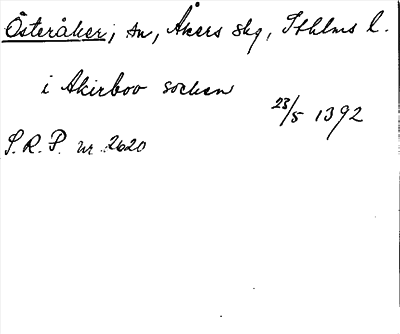 Österåker; sn, Åkers skg, Sthlms l.
i Akirboo socken
23/5 1392
S.R.P. nr 2620